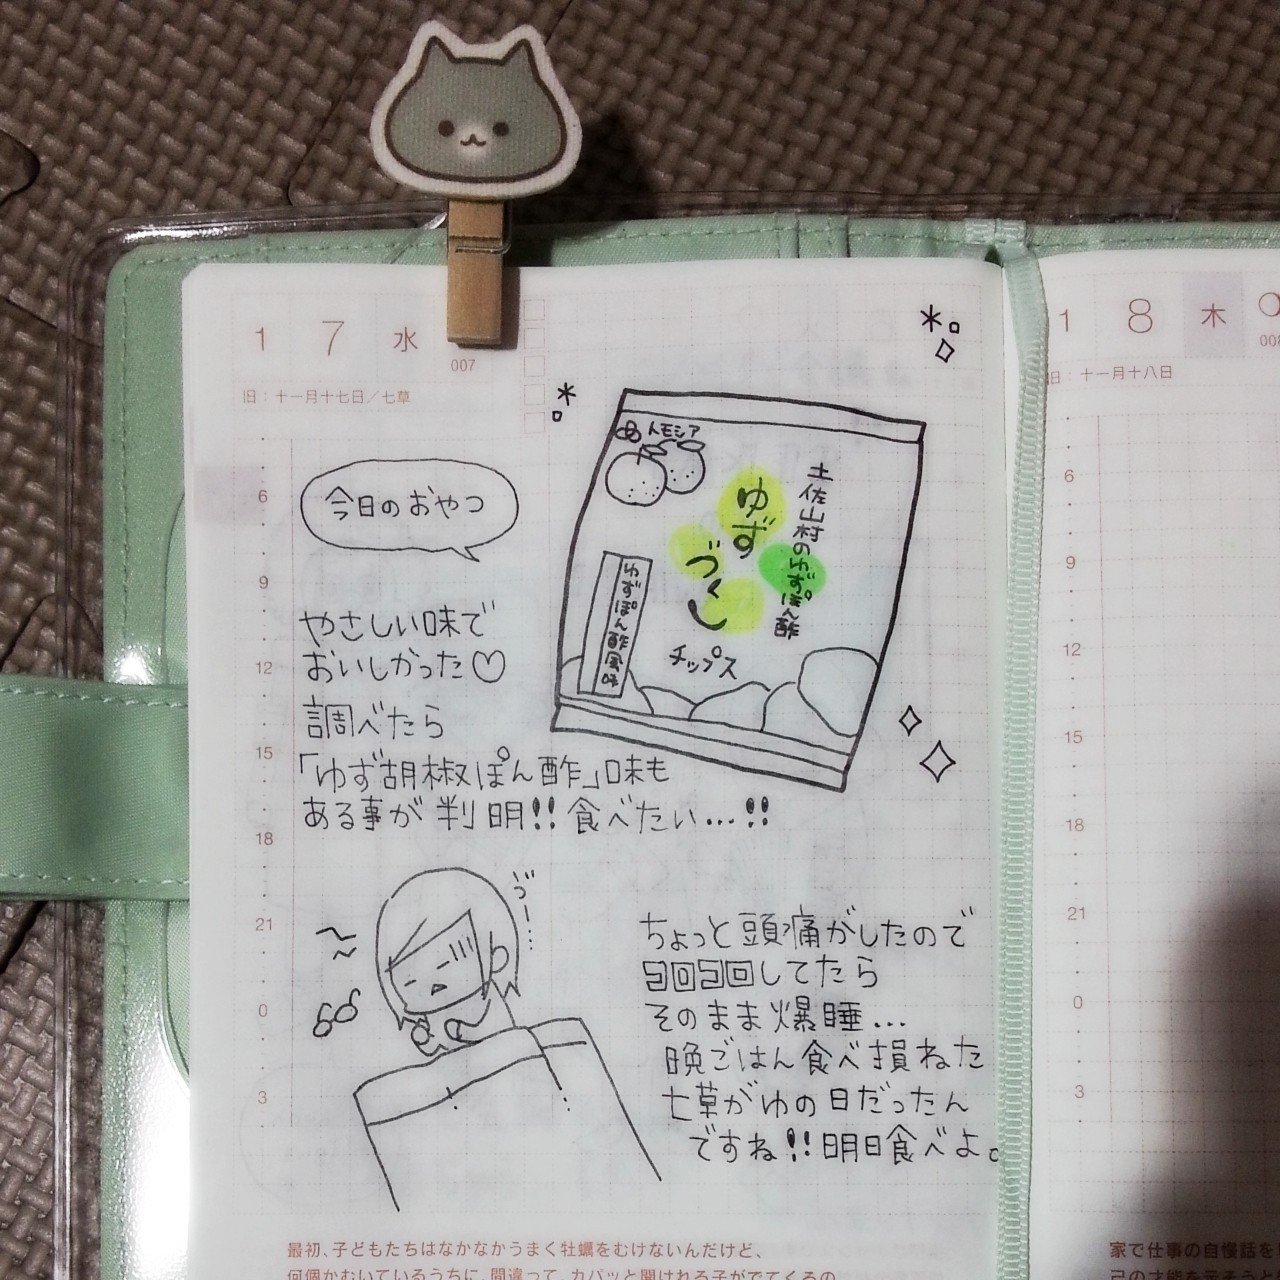 1 7 水
007
旧：十一月十七日／七草
6
9
12
15
18
21
0
3
今日のおやつ
やさしい味で
おいしかった♡
調べたら
「ゆず胡椒ぽん酢」味も
ある事が判明!!食べたい…!!
トモシア
土佐山村のゆずぽん酢
ゆず
づくし
チップス
ゆずぽん酢風味
づー…
ちょっと頭痛がしたので
ゴロゴロしてたら
そのまま爆睡…
晩ごはん食べ損ねた
七草がゆの日だったん
ですね!!明日食べよ。
最初、子どもたちはなかなかうまく牡蠣をむけないんだけど、
何個かむいているうちに、間違って、カパッと開けれる子がでてくるの
1 8 木
008
旧：十一月十八日
6
9
12
15
18
21
0
3
家で仕事の自慢話を